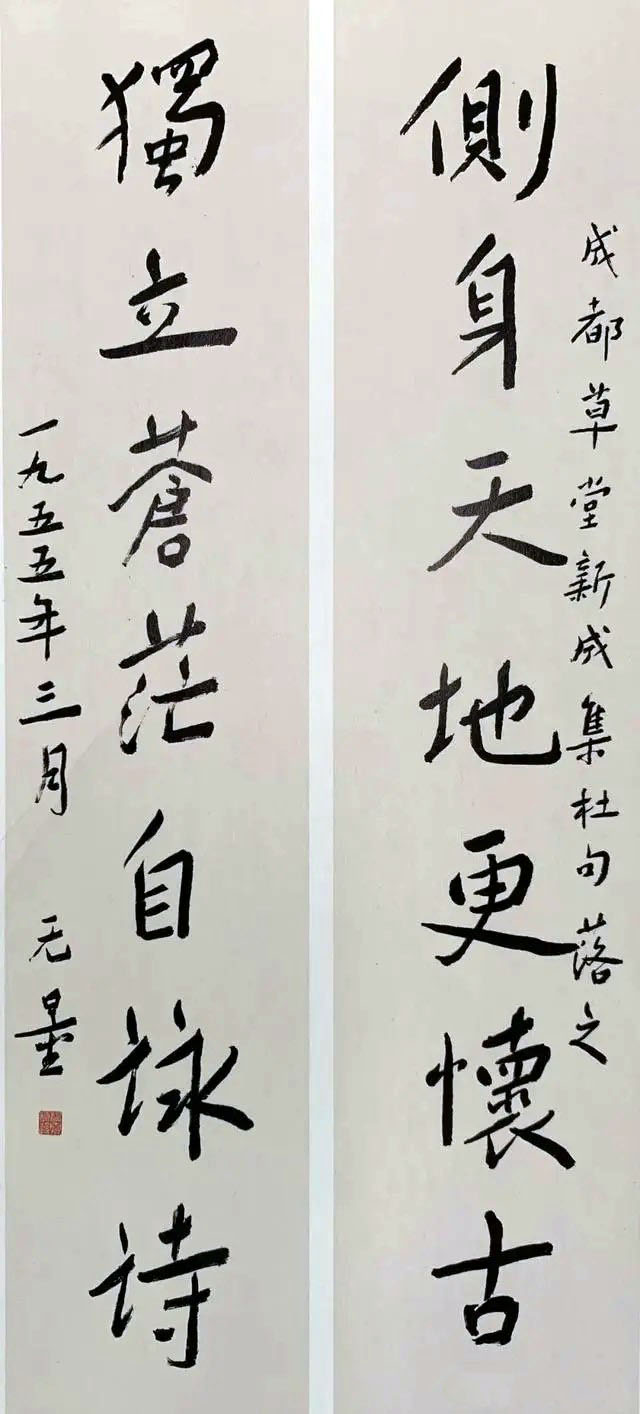 成都草堂新成集杜句落之
側身天地更懷古
獨立蒼茫自詠诗
一九五五年三月 无量